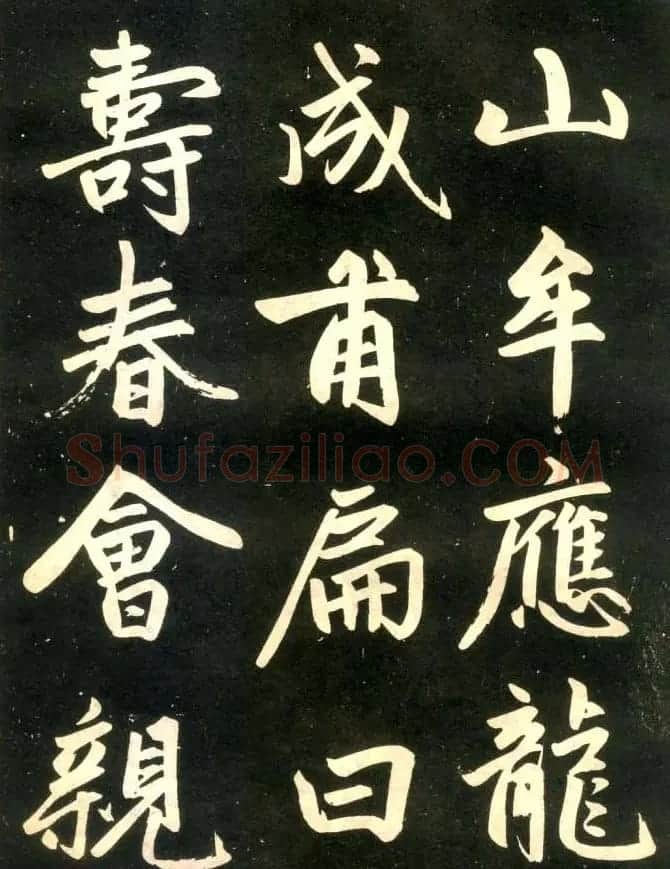 山牟應龍
成甫扁曰
壽春會親
Shufaziliao.COM